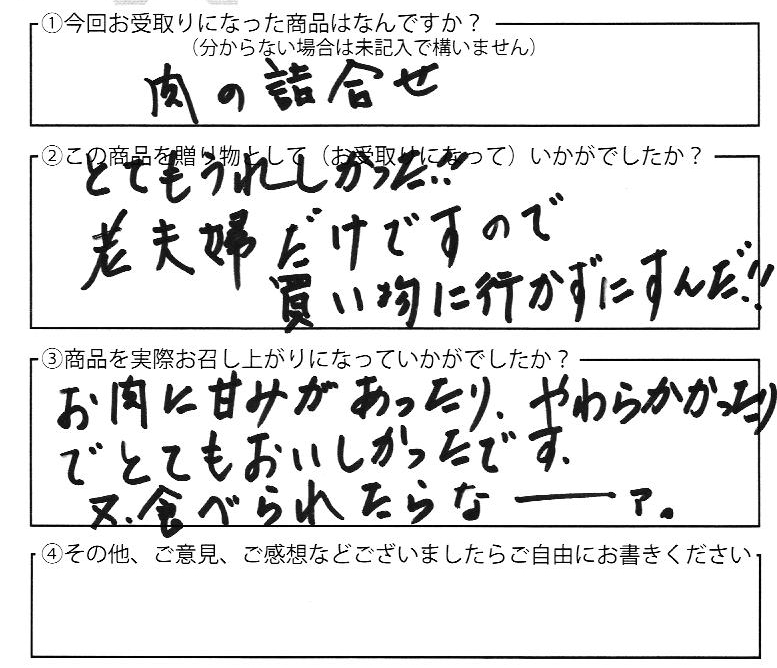 ①今回お受取りになった商品はなんですか？
（分からない場合は未記入で構いません）
肉の詰合せ
②この商品を贈り物として（お受取けになって）いかがでしたか？
とてもうれしかった!!
老夫婦だけですので
買い物に行かずにすんだ!!
③商品を実際お召し上がりになっていかがでしたか？
お肉に甘みがあったり、やわらかかったり
でとてもおいしかったです、
又、食べられたらなーァ。
④その他、ご意見、ご感想などございましたらご自由にお書きください